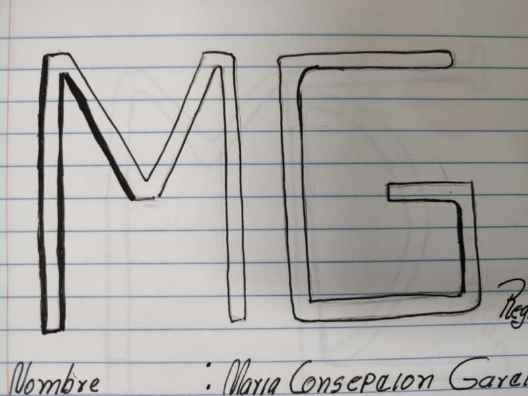 MG
Reg
Nombre : Maria Consepcion Garci